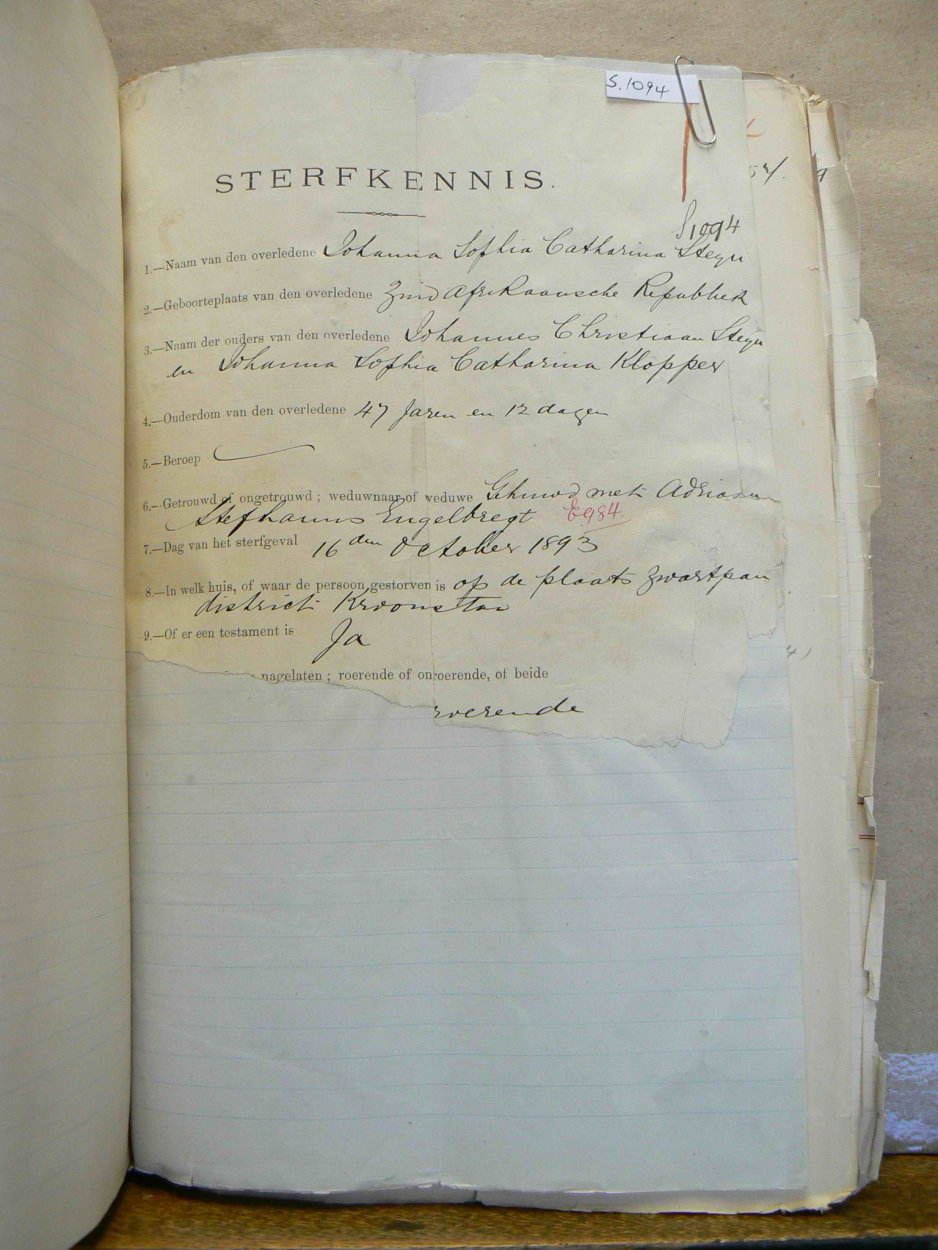 S.1094
STERFKENNIS.
S1094
1.—Naam van den overledene Johanna Sophia Catharina Steyn
2.—Geboorteplaats van den overledene Zuid Afrikaansche Republiek
3.—Naam der ouders van den overledene Johannes Christiaan Steyn
en Johanna Sophia Catharina Klopper
4.—Ouderdom van den overledene 47 Jaren en 12 dagen
5.—Beroep
6.—Getrouwd of ongetrouwd; weduwnaar of weduwe Gehuwd met Adriaan
Stefhanus Engelbregt E984
7.—Dag van het sterfgeval 16den October 1893
8.—In welk huis, of waar de persoon gestorven is op de plaats Zwartpan
district Kroonstad
9.—Of er een testament is Ja
nagelaten; roerende of onroerende, of beide
roerende